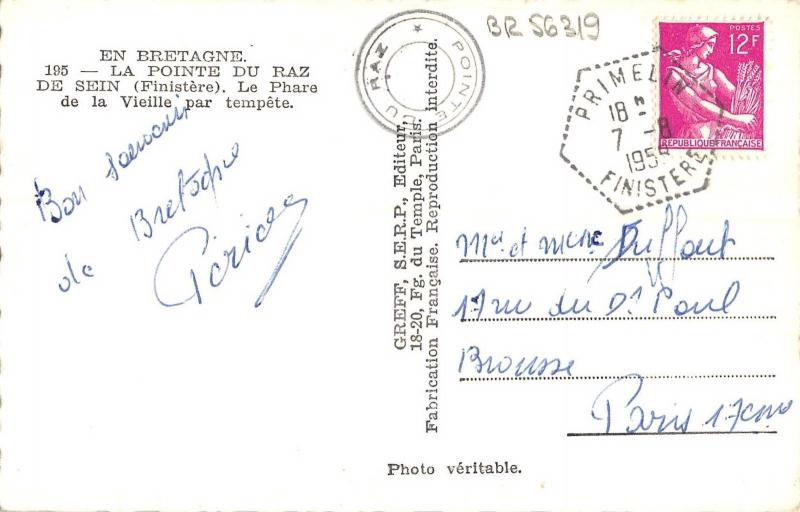 BR 56319
EN BRETAGNE.
195 — LA POINTE DU RAZ
DE SEIN (Finistère). Le Phare
de la Vieille par tempête.
POINTE DU RAZ
POSTES
12F
REPUBLIQUE FRANÇAISE
PRIMELIN
18 H
7 -8
FINISTERE
Bon souvenir
de Bretagne
GREFF, S.E.R.P., Editeur,
18-20, Fg. du Temple, Paris.
Fabrication Française. Reproduction interdite.
Mr et Mme
17 rue du Dr Paul
Brousse
Paris 17eme
Photo véritable.